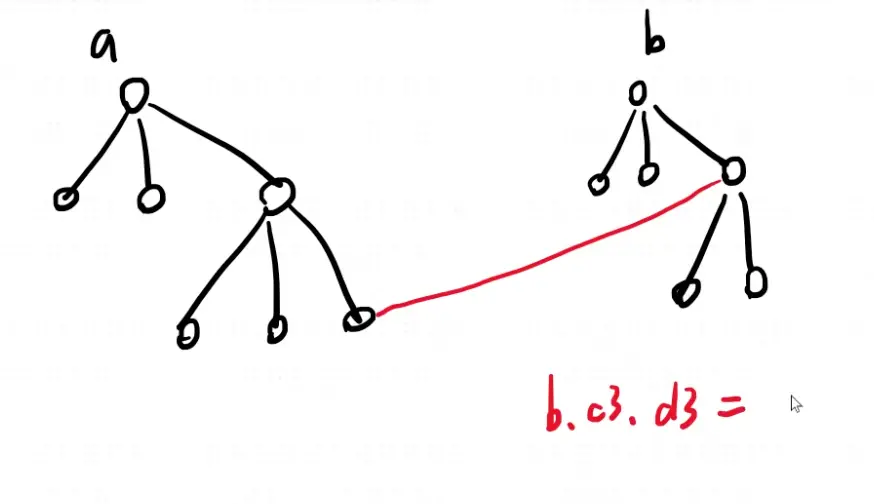 a
b
b.c3.d3 =